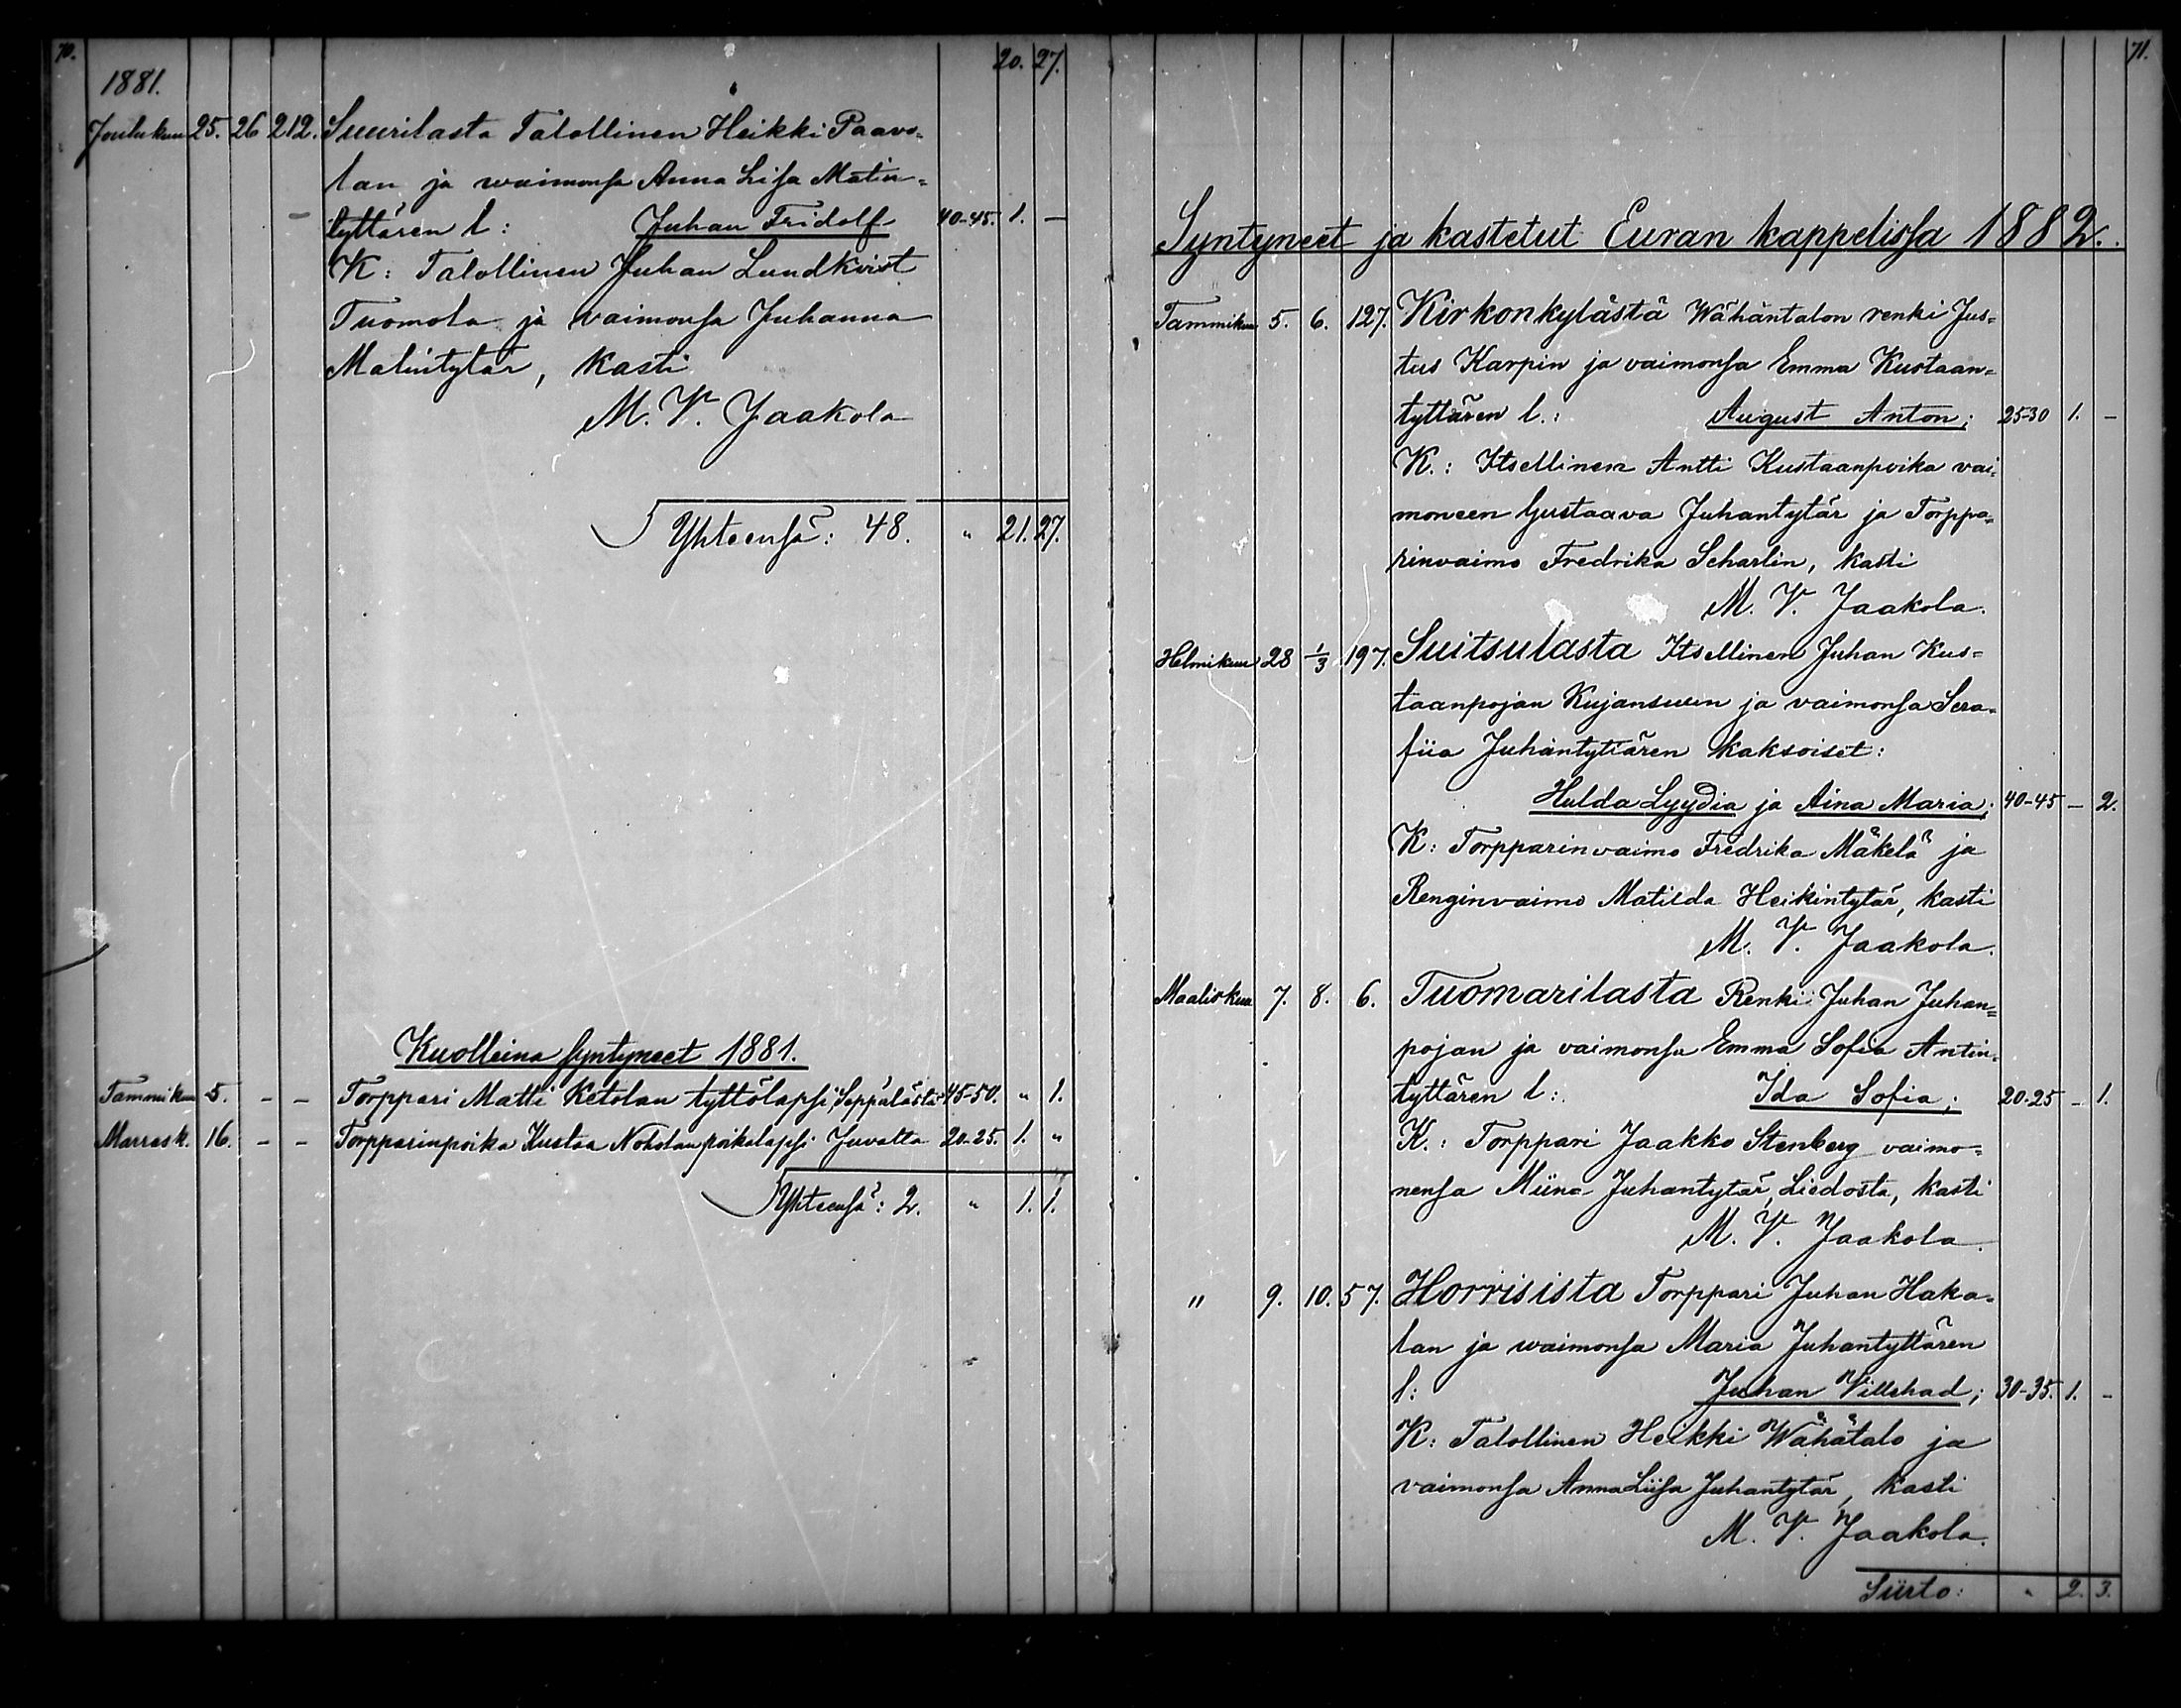 70.
20. 27.
1881.
Joulukuu 25. 26 212. Suurilasta Talollinen Heikki Paavo-
lan ja waimonsa Anna Lisa Matin-
tyttären l: Juhan Fridolf 40-45. 1. —
K: Talollinen Juhan Lundkvist
Tuomola ja vaimonsa Juhanna
Matintytär, kasti
M. V. Jaakola
Yhteensä: 48. " 21. 27.
Kuolleina syntyneet 1881.
Tammikuu 5. - - Torppari Matti Ketolan tyttölapsi, Seppälästä 45-50. " 1.
Marrask. 16. - - Torpparinpoika Kustaa Nokolan poikalapsi Juvalta 20-25. 1. "
Yhteensä: 2. " 1. 1.
71.
Syntyneet ja kastetut Euran kappelissa 1882.
Tammikuu 5. 6. 127. Kirkonkylästä Wähäntalon renki Jus-
tus Karpin ja vaimonsa Emma Kustaan-
tyttären l.: August Anton; 25-30 1. -
K.: Itsellinen Antti Kustaanpoika vai-
moneen Gustaava Juhantytär ja Torppa-
rinvaimo Fredrika Scharlin, kasti
M. V. Jaakola.
Helmikuu 28 1/3 197. Suitsulasta Itsellinen Juhan Kus-
taanpojan Kujansuun ja vaimonsa Sera-
fiia Juhantyttären kaksoiset:
Hulda Lyydia ja Aina Maria; 40-45 - 2.
K: Torpparinvaimo Fredrika Mäkelä ja
Renginvaimo Matilda Heikintytär, kasti
M. V. Jaakola.
Maaliskuu 7. 8. 6. Tuomarilasta Renki Juhan Juhan-
pojan ja vaimonsa Emma Sofia Antin-
tyttären l: Ida Sofia; 20-25 - 1.
K.: Torppari Jaakko Stenberg vaimo-
nensa Miina Juhantytär, Liedosta, kasti
M. V. Jaakola.
" 9. 10. 57. Horrisista Torppari Juhan Haka-
lan ja waimonsa Maria Juhantyttären
l: Juhan Villehad; 30-35. 1. -
K: Talollinen Heikki Wähätalo ja
vaimonsa Anna Liisa Juhantytär, kasti
M. V. Jaakola.
Siirto: " 2. 3.